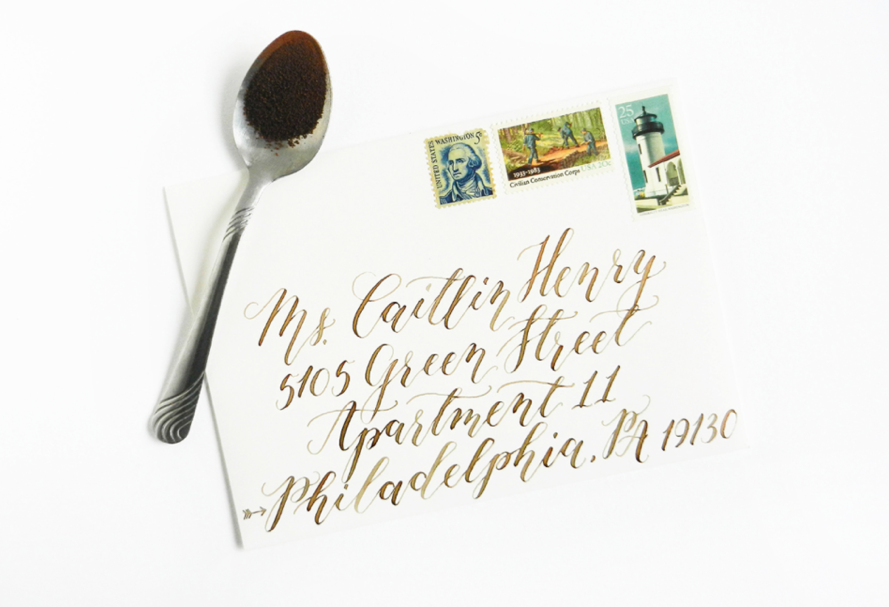 UNITED STATES
WASHINGTON 5¢
1933-1983
Civilian Conservation Corps USA 20c
25
USA
Ms. Caitlin Henry
5105 Green Street
Apartment 11
Philadelphia, PA 19130